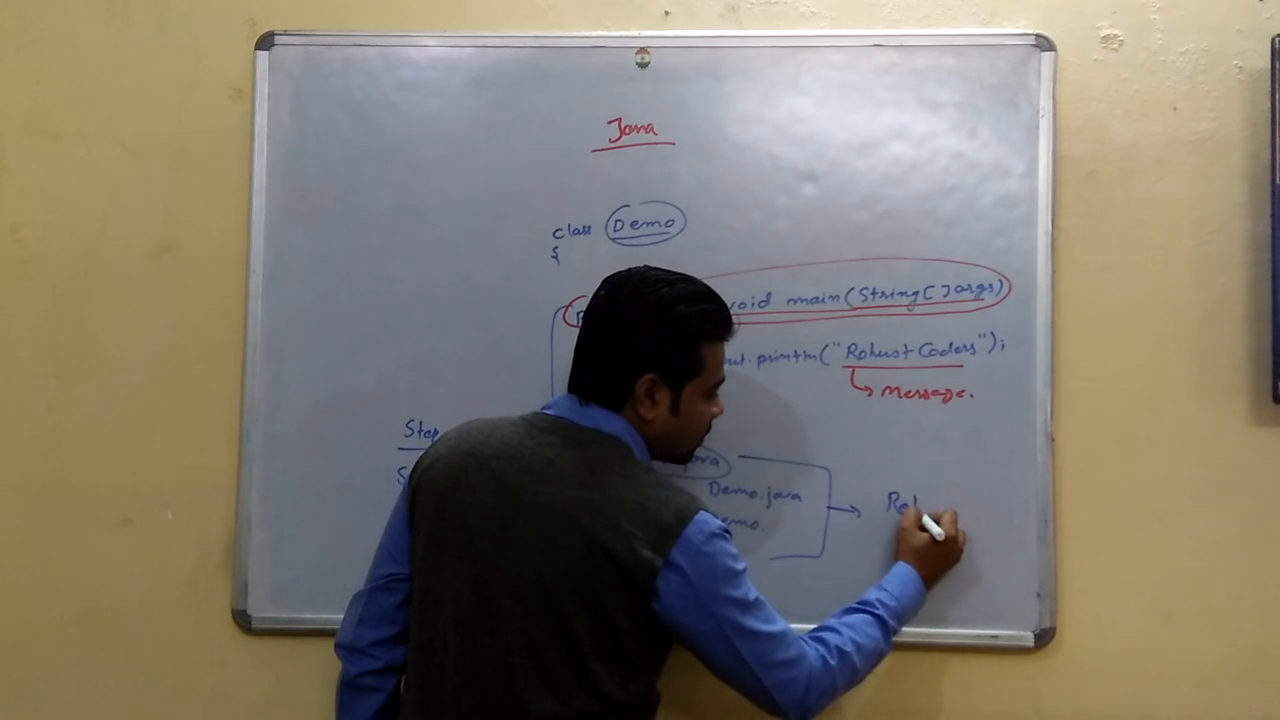 Java
class Demo
{
void main(String[] args)
out.println("Robust Coders");
Message.
Step
Demo.java
emo.
Ro